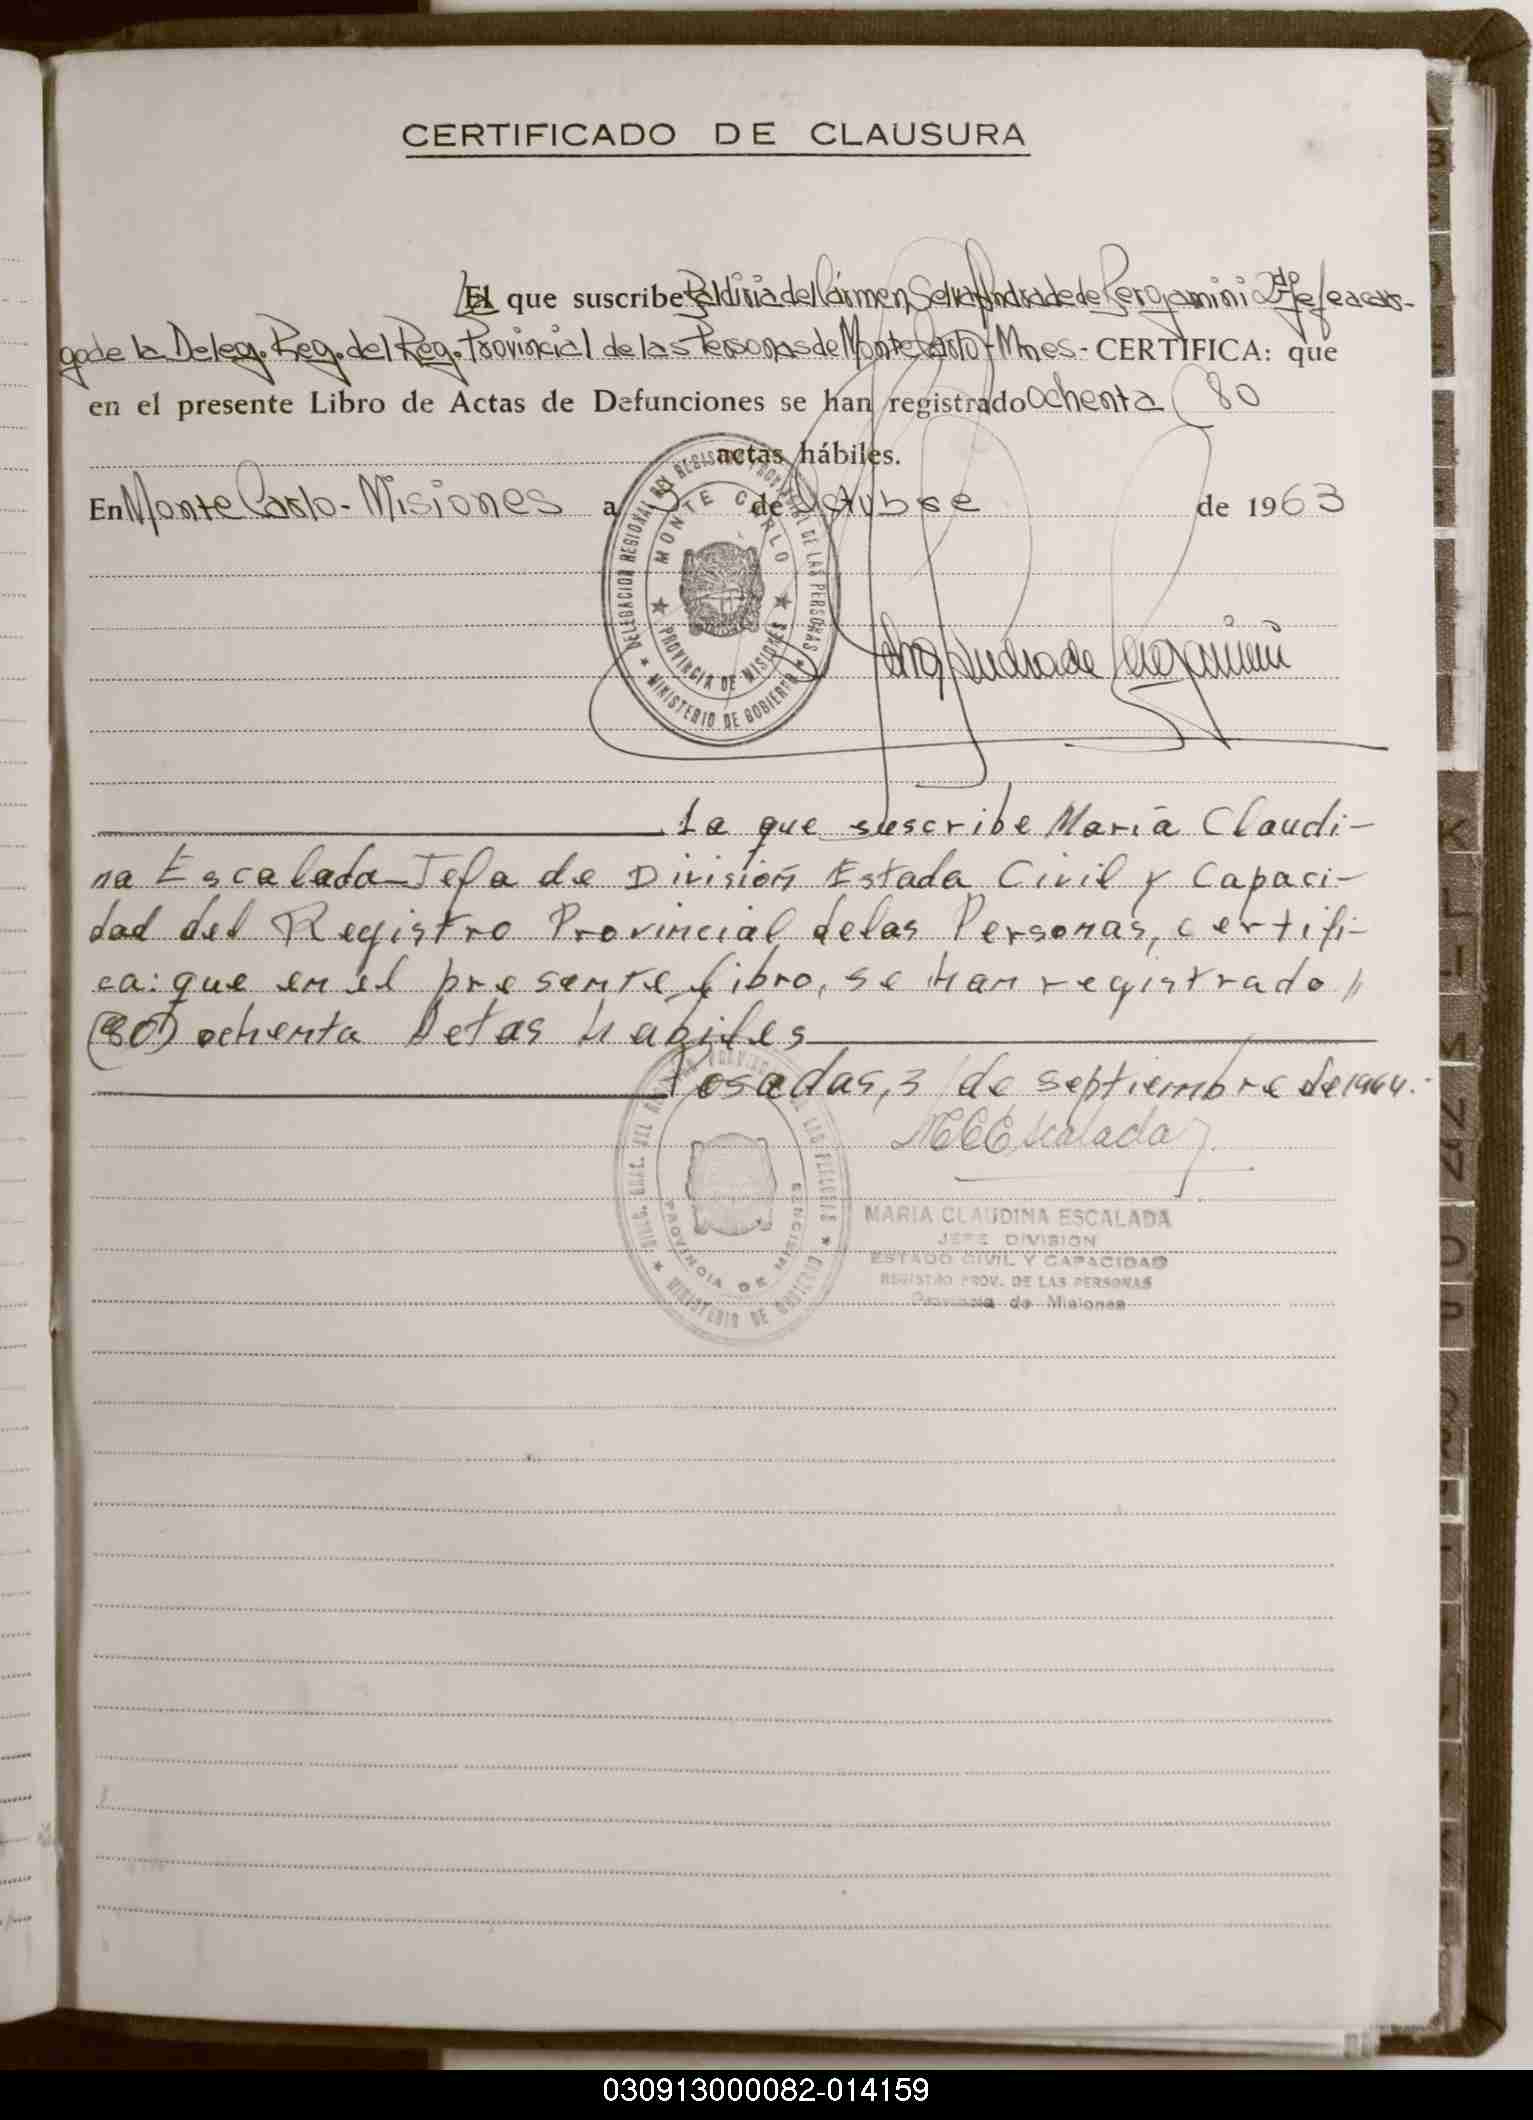 CERTIFICADO DE CLAUSURA
La que suscribe Baldiria del Cármen Selva Andrade de Bergamini 2do Jefe a car-
go de la Deleg. Reg. del Reg. Provincial de las Personas de Monte Carlo - Mnes - CERTIFICA: que
en el presente Libro de Actas de Defunciones se han registrado Ochenta (80
actas hábiles.
En Monte Carlo - Misiones a de Octubre de 1963
DELEGACION REGIONAL DEL REGISTRO PROVINCIAL DE LAS PERSONAS
MONTE CARLO
PROVINCIA DE MISIONES
MINISTERIO DE GOBIERNO
Selva Andrade Bergamini
La que suscribe María Claudi-
na Escalada - Jefa de División Estada Civil y Capaci-
dad del Registro Provincial de las Personas, certifi-
ca: que en el presente libro, se han registrado //
(80) ochenta Actas habiles
Posadas, 3 de septiembre de 1964.-
MCEscalada
PROVINCIA DE MISIONES
MINISTERIO DE GOBIERNO
MARIA CLAUDINA ESCALADA
JEFE DIVISION
ESTADO CIVIL Y CAPACIDAD
REGISTRO PROV. DE LAS PERSONAS
Provincia de Misiones
K
L
M
030913000082-014159